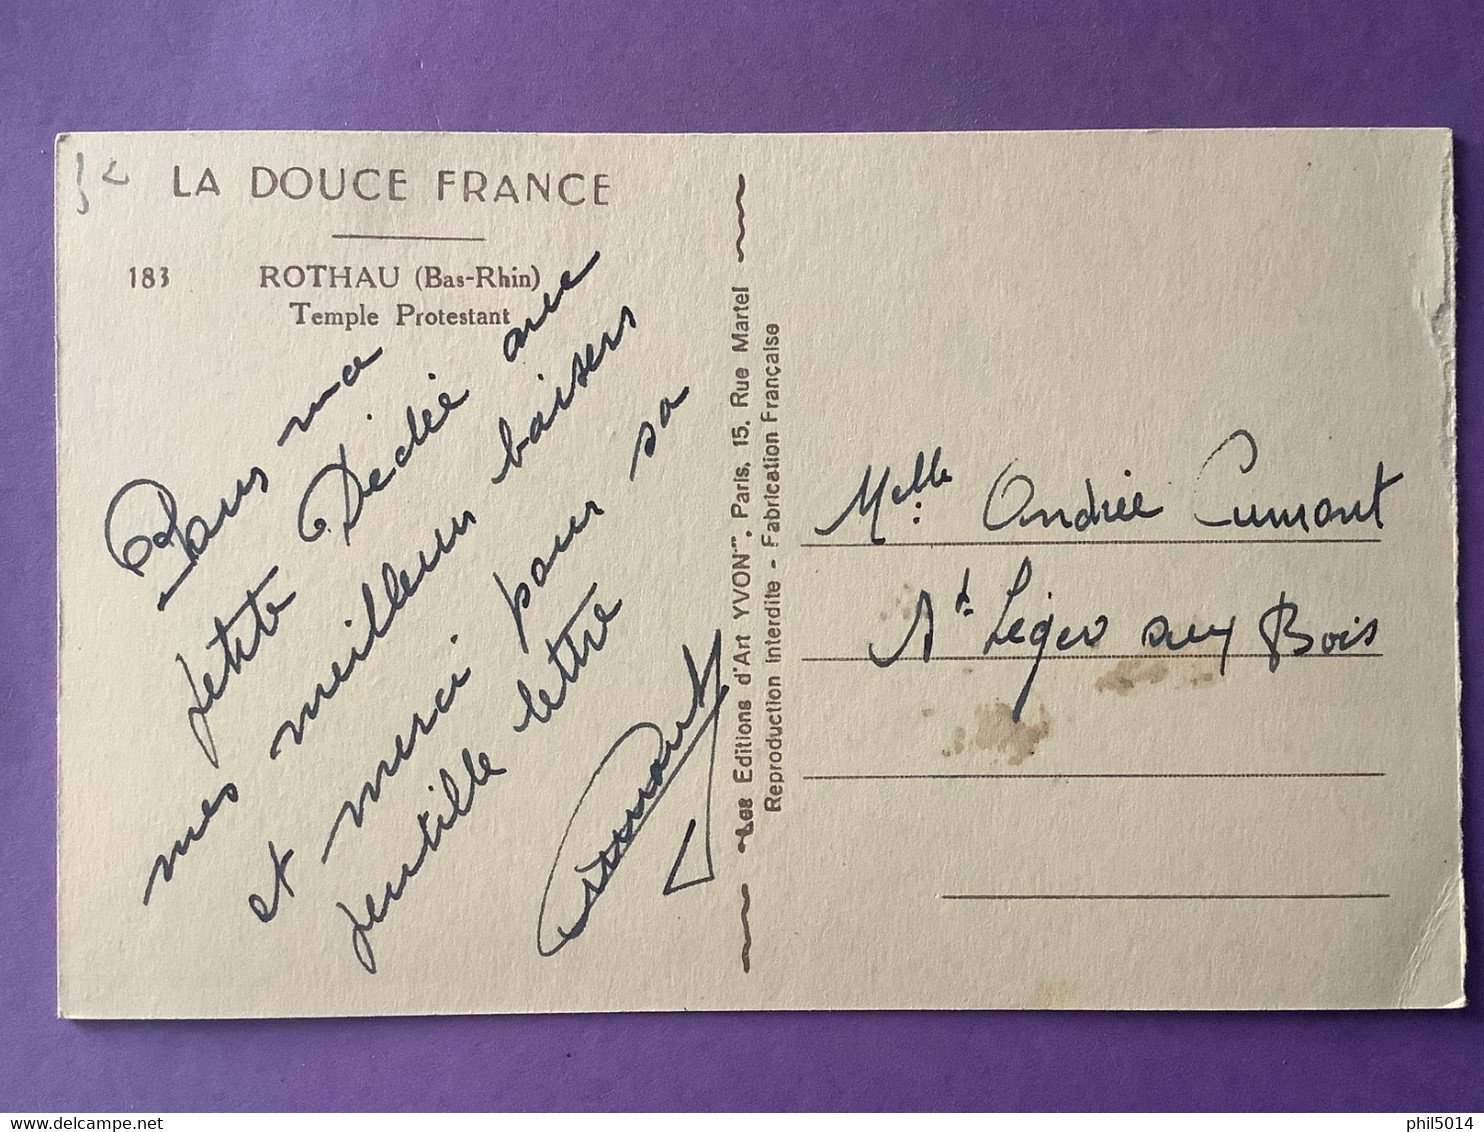 LA DOUCE FRANCE
183 ROTHAU (Bas-Rhin)
Temple Protestant
Pour ma
petite Dédée avec
mes meilleurs baisers
et merci pour sa
gentille lettre
Les Editions d'Art YVON, Paris, 15, Rue Martel
Reproduction Interdite - Fabrication Française
Melle Andrée Cumont
St Léger aux Bois
delcampe.net
phil5014